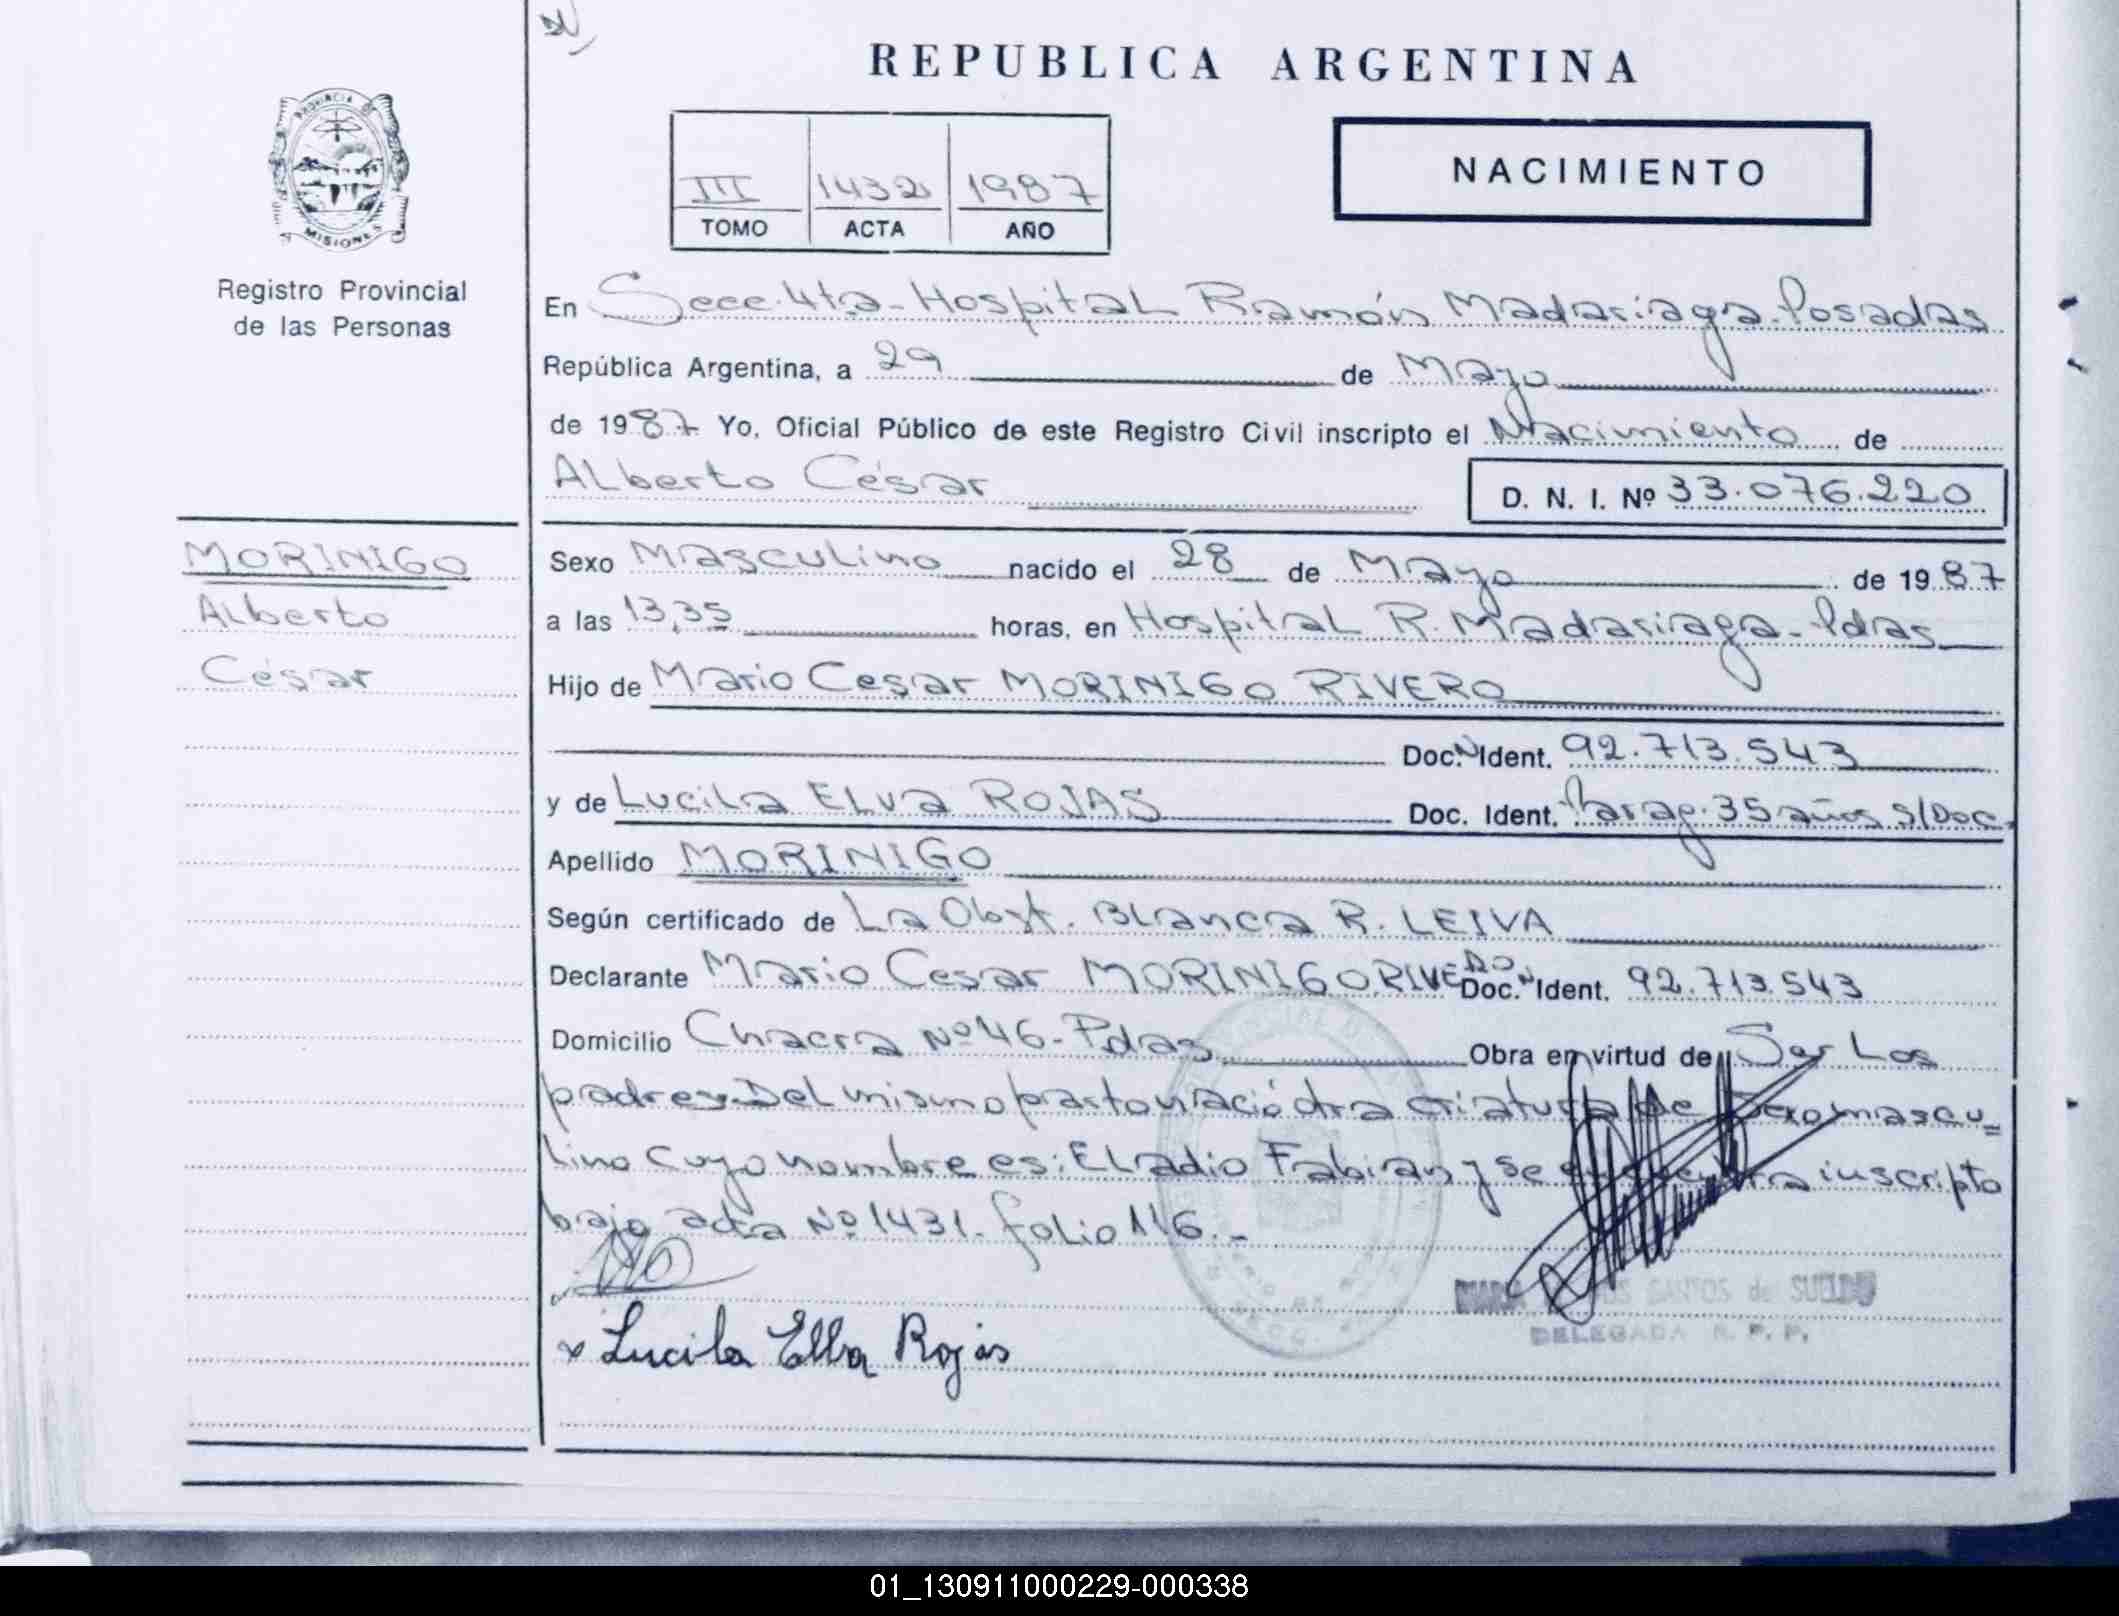 REPUBLICA ARGENTINA
PROVINCIA DE
MISIONES
Registro Provincial
de las Personas
III 1432 1987
TOMO ACTA AÑO
NACIMIENTO
En Secc. 4ta - Hospital Ramón Madariaga - Posadas
República Argentina, a 29 de Mayo
de 1987 Yo, Oficial Público de este Registro Civil inscripto el Nacimiento de
Alberto César
D. N. I. Nº 33.076.220
MORINIGO
Alberto
César
Sexo Masculino nacido el 28 de Mayo de 1987
a las 13,35 horas, en Hospital R. Madariaga - Pdas
Hijo de Mario Cesar MORINIGO RIVERO
Doc. N Ident. 92.713.543
y de Lucila Elva ROJAS Doc. Ident. Parag. 35 años s/Doc.
Apellido MORINIGO
Según certificado de La Obst. Blanca R. LEIVA
Declarante Mario Cesar MORINIGO RIVERO Doc. N Ident. 92.713.543
Domicilio Chacra Nº 46 - Pdas Obra en virtud de Ser Los
padres. Del mismo parto nació otra criatura de sexo mascu=
lino cuyo nombre es: Eladio Fabian y se encuentra inscripto
bajo acta Nº 1431. folio 116.-
x Lucila Elba Rojas
MARIA SANTOS de SUELDO
DELEGADA R. P. P.
01_130911000229-000338